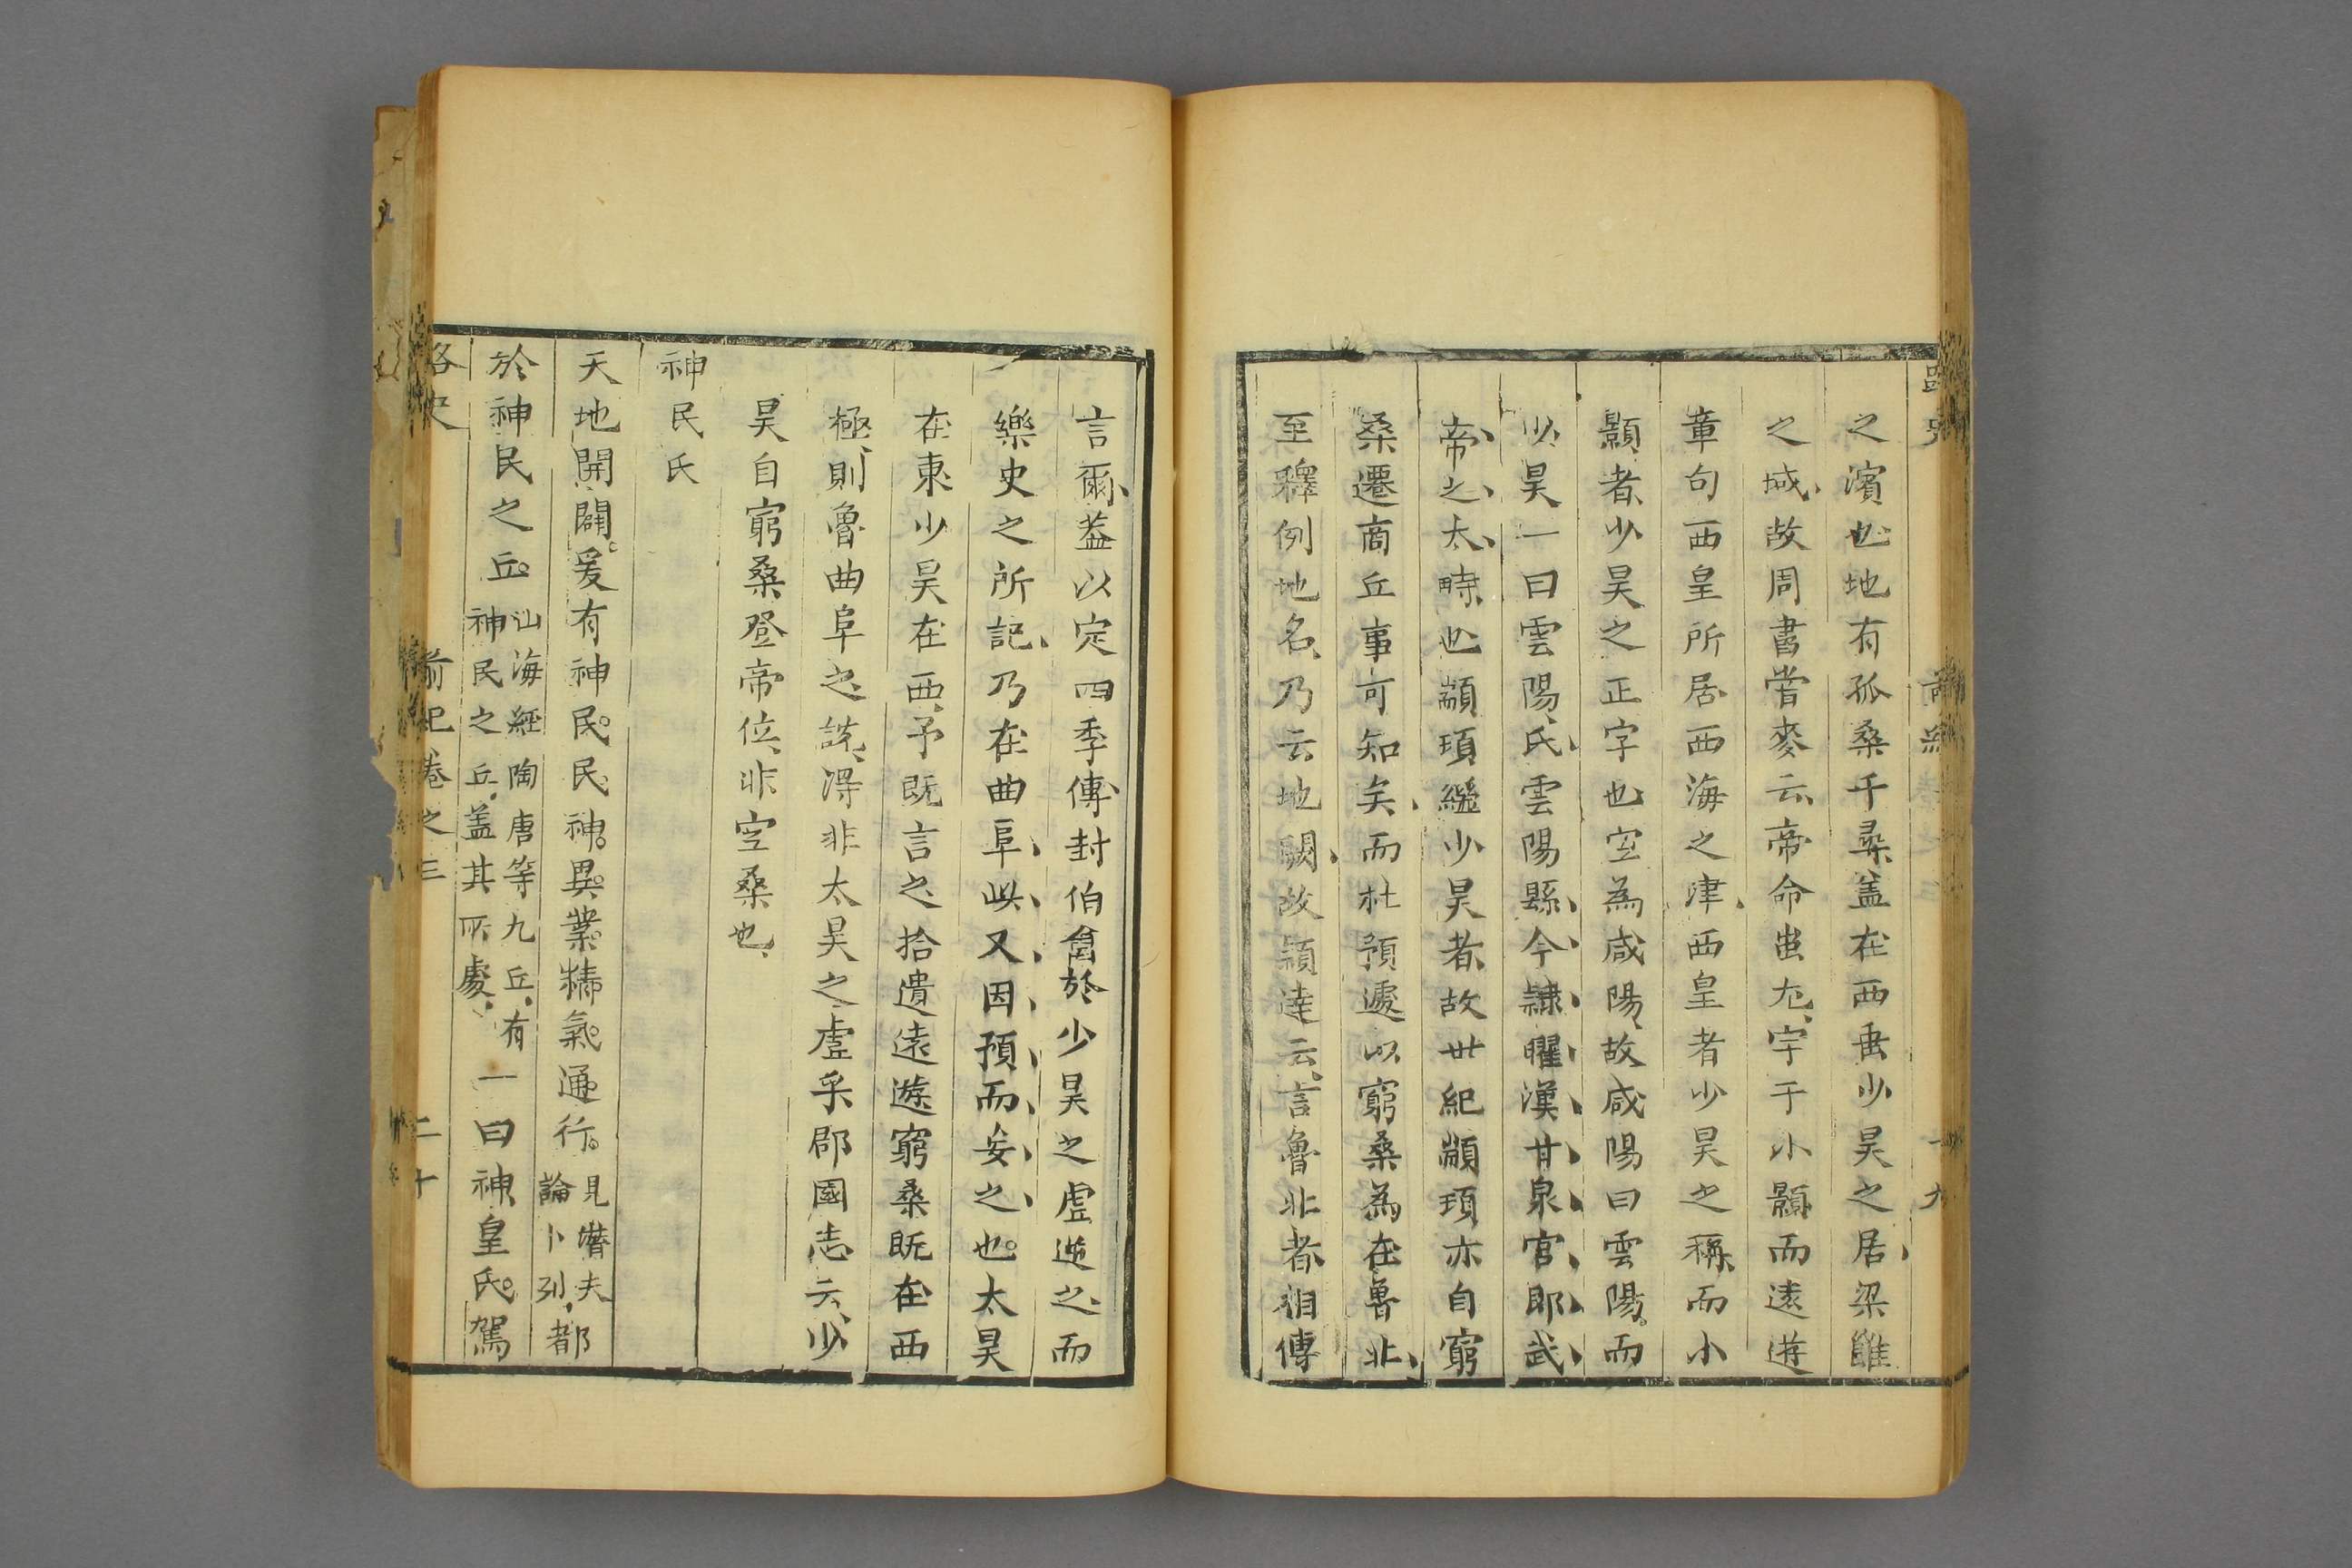 之濱也地有孤桑千尋盖在西垂少昊之居梁雝
之域故周書嘗麥云帝命蚩尤宇于小顥而遠遊
章句西皇所居西海之津西皇者少昊之稱而小
顥者少昊之正字也空為咸陽故咸陽曰雲陽而
少昊一曰雲陽氏雲陽縣今隷曜漢甘泉宫郎武
帝之太畤也顓頊繼少昊者故世紀顓頊亦自窮
桑遷商丘事可知矣而杜預遽以窮桑為在魯北
至釋例地名乃云地闕故頴達云言魯北者相傳
言爾葢以定四季傳封伯禽於少昊之虛逆之而
樂史之所記乃在曲阜此又因預而妄之也太昊
在東少昊在西予既言之拾遺遠遊窮桑既在西
極則魯曲阜之説淂非太昊之虛乎郡國志云少
昊自窮桑登帝位非空桑也
神民氏
天地開闢爰有神民民神異業精氣通行見濳夫論卜列都
於神民之丘山海經陶唐等九丘有神民之丘盖其所處一曰神皇氏駕
路史 前紀卷之三 二十